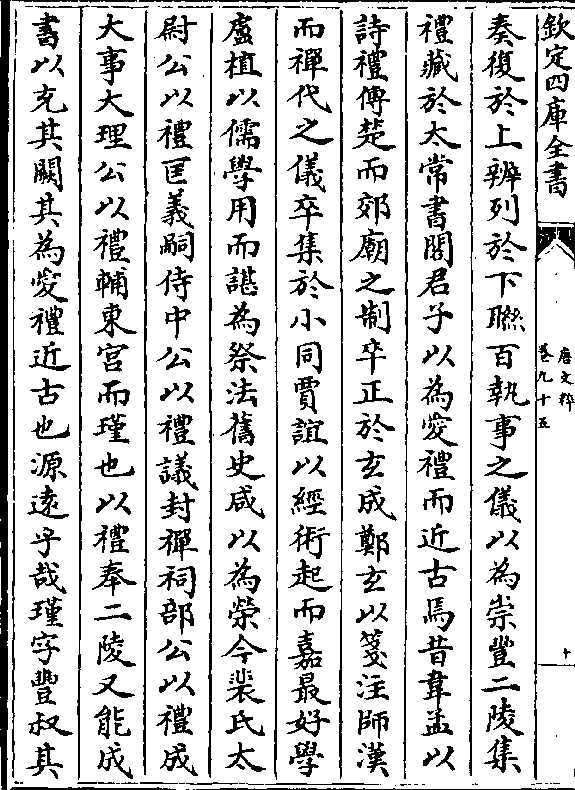 欽定四庫全書
唐文粹
卷九十五
十
奏復於上辨列於下聯百執事之儀以為崇豐二陵集
禮藏於太常書閣君子以為愛禮而近古焉昔韋孟以
詩禮傅楚而郊廟之制卒正於玄成鄭玄以箋注師漢
而禪代之儀卒集於小同賈誼以經術起而嘉最好學
盧植以儒學用而諶為祭法舊史咸以為榮今裴氏太
尉公以禮匡義嗣侍中公以禮議封禪祠部公以禮成
大事大理公以禮輔東宮而瑾也以禮奉二陵又能成
書以充其闕其為愛禮近古也源遠乎哉瑾字豐叔其